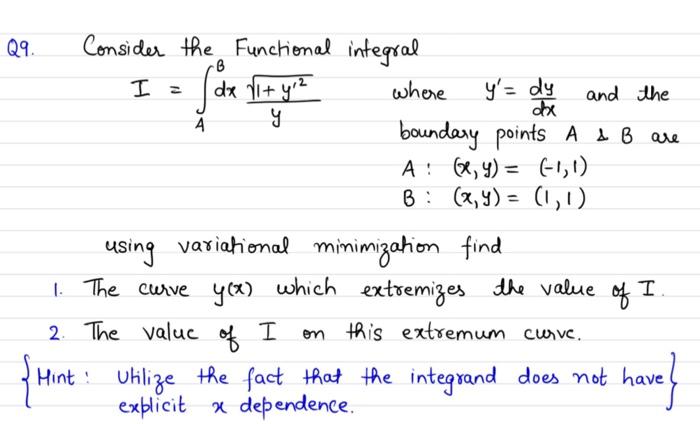 Q9. Consider the Functional integral
I = ∫_A^B dx √(1+y'²)/y where y' = dy/dx and the
boundary points A & B are
A : (x,y) = (-1,1)
B : (x,y) = (1,1)
using variational minimization find
1. The curve y(x) which extremizes the value of I.
2. The value of I on this extremum curve.
{Hint : Utilize the fact that the integrand does not have
explicit x dependence.}